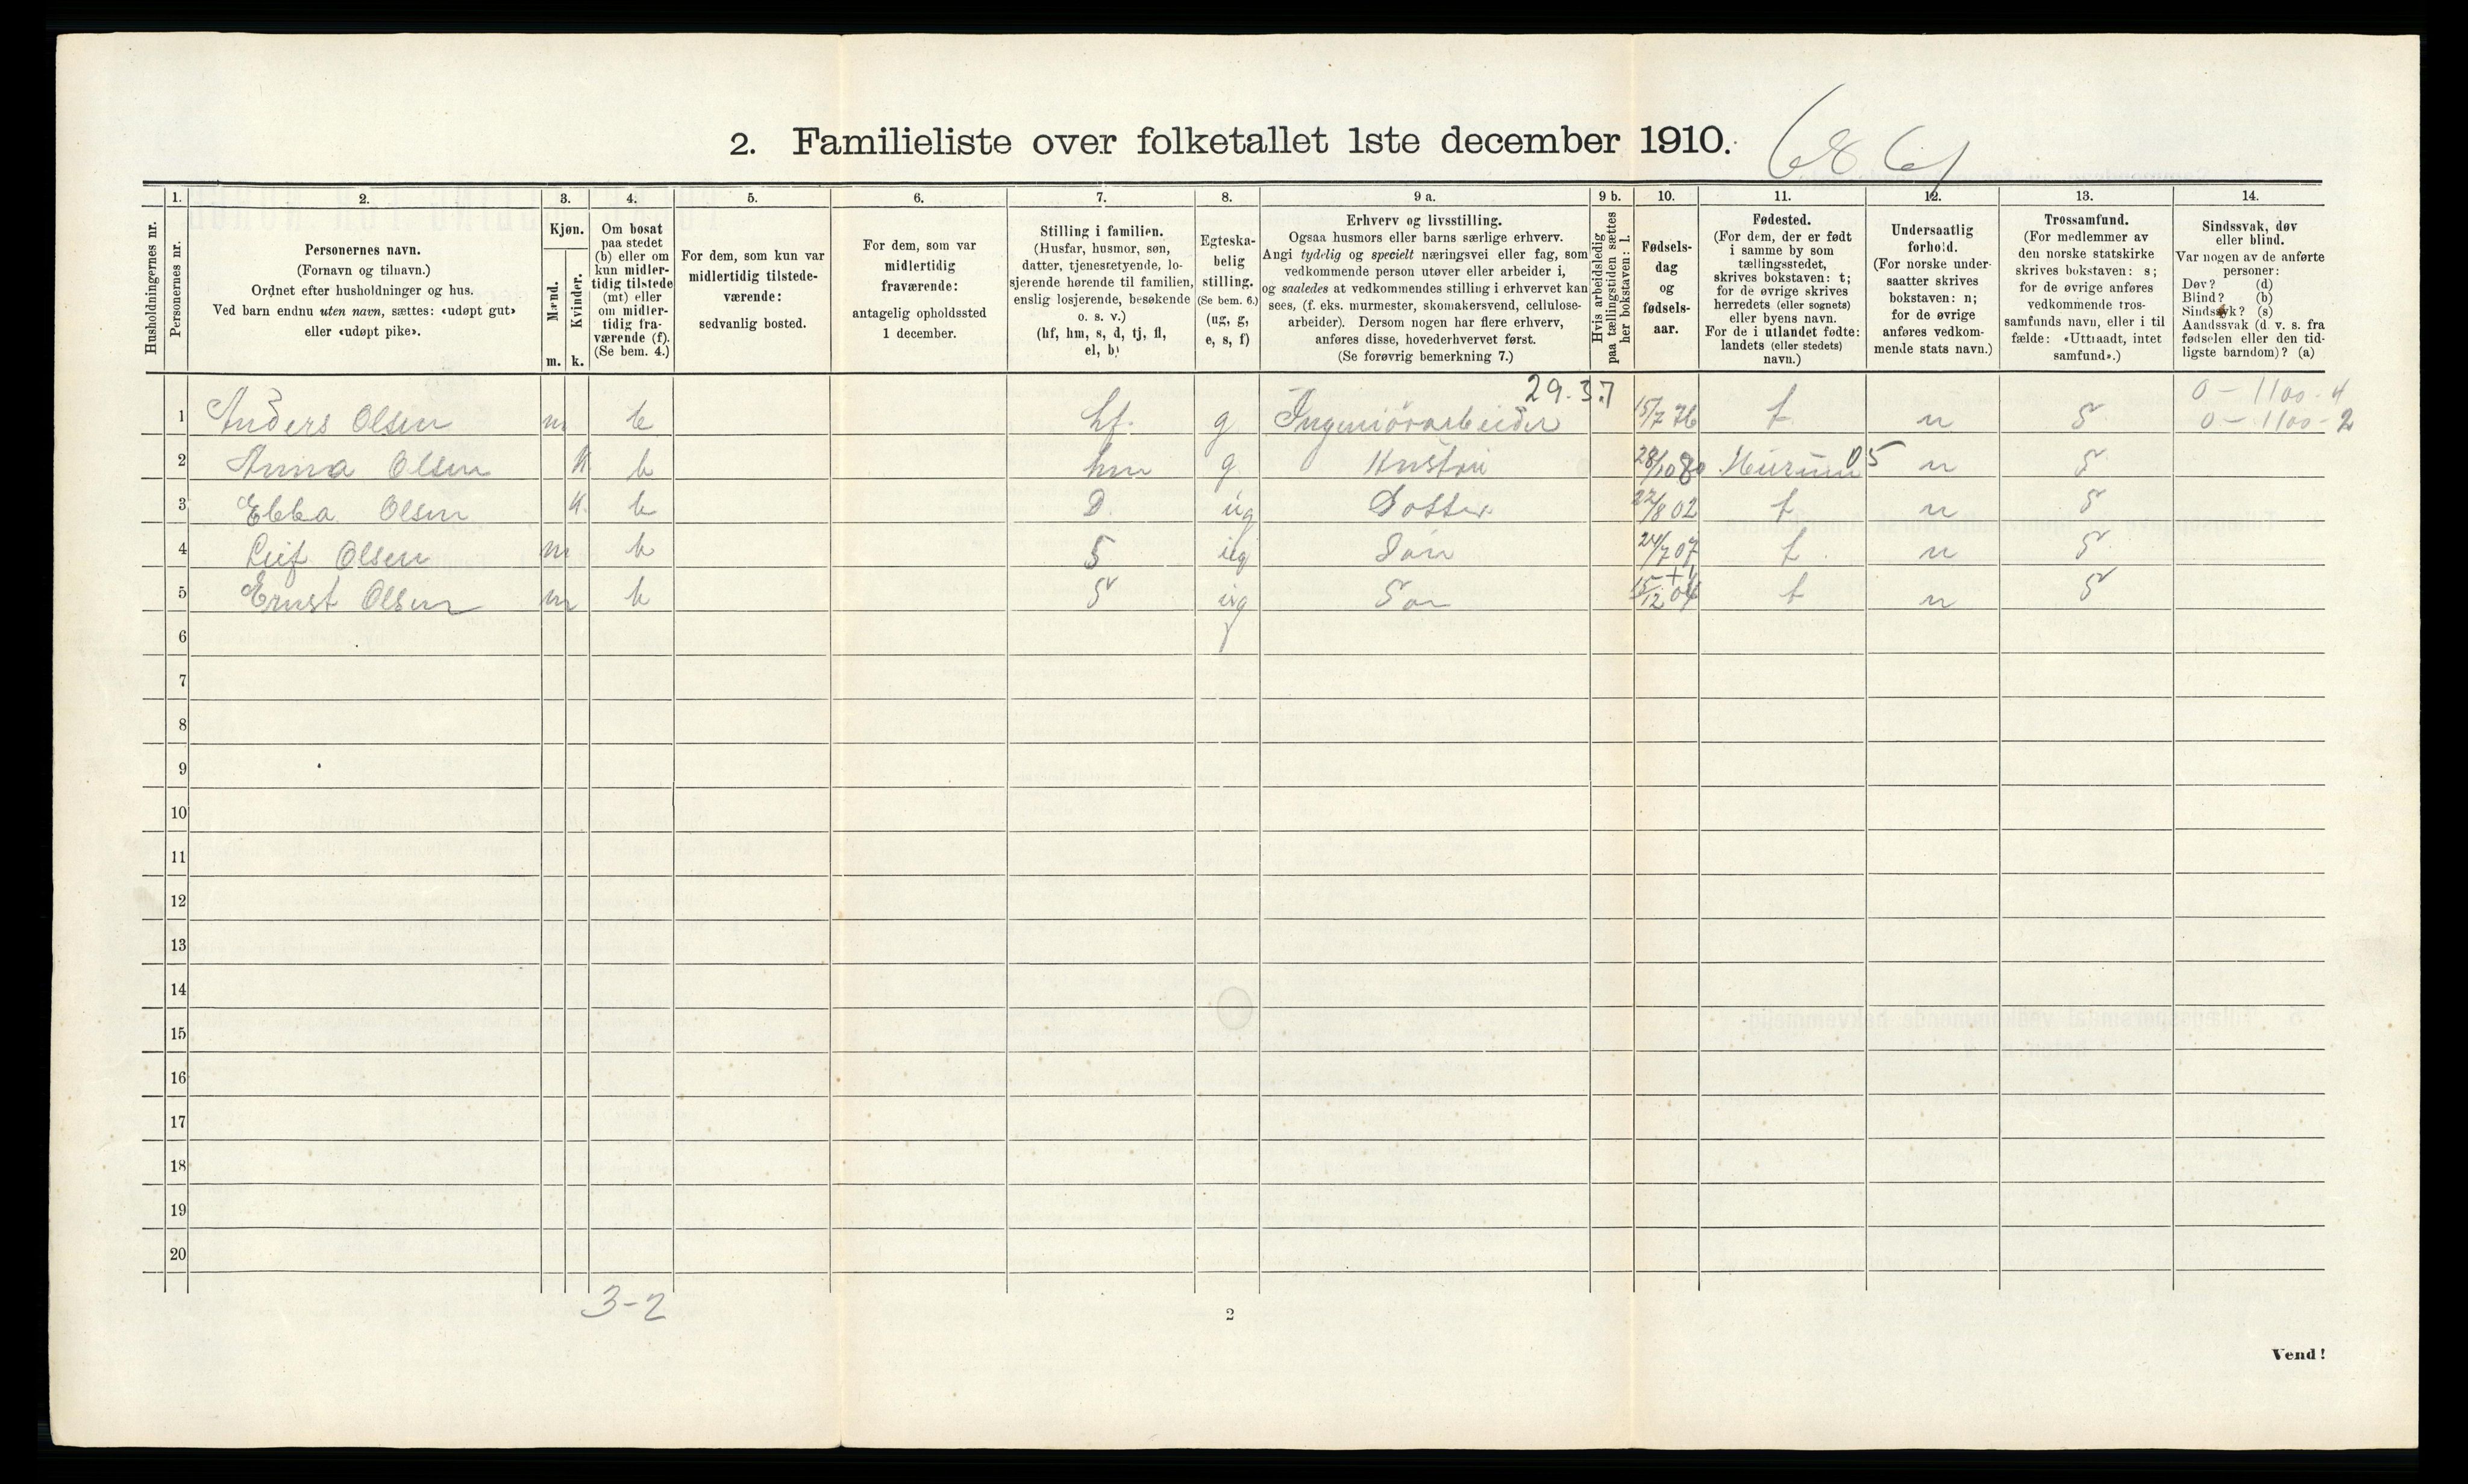 2. Familieliste over folketallet 1ste december 1910.
1. 2. 3. 4. 5. 6. 7. 8. 9 a. 9 b. 10. 11. 12. 13. 14.
Husholdningernes nr.
Personernes nr.
Personernes navn.
(Fornavn og tilnavn.)
Ordnet efter husholdninger og hus.
Ved barn endnu uten navn, sættes: «udøpt gut»
eller «udøpt pike».
Kjøn.
Mænd.
m.
Kvinder.
k.
Om bosat
paa stedet
(b) eller om
kun midler-
tidig tilstede
(mt) eller
om midler-
tidig fra-
værende (f).
(Se bem. 4.)
For dem, som kun var
midlertidig tilstede-
værende:
sedvanlig bosted.
For dem, som var
midlertidig
fraværende:
antagelig opholdssted
1 december.
Stilling i familien.
(Husfar, husmor, søn,
datter, tjenestetyende, lo-
sjerende hørende til familien,
enslig losjerende, besøkende
o. s. v.)
(hf, hm, s, d, tj, fl,
el, b)
Egteska-
belig
stilling.
(Se bem. 6.)
(ug, g,
e, s, f)
Erhverv og livsstilling.
Ogsaa husmors eller barns særlige erhverv.
Angi tydelig og specielt næringsvei eller fag, som
vedkommende person utøver eller arbeider i,
og saaledes at vedkommendes stilling i erhvervet kan
sees, (f. eks. murmester, skomakersvend, cellulose-
arbeider). Dersom nogen har flere erhverv,
anføres disse, hovederhvervet først.
(Se forøvrig bemerkning 7.)
Hvis arbeidsledig
paa tællingstiden sættes
her bokstaven: l.
Fødsels-
dag
og
fødsels-
aar.
Fødested.
(For dem, der er født
i samme by som
tællingsstedet,
skrives bokstaven: t;
for de øvrige skrives
herredets (eller sognets)
eller byens navn.
For de i utlandet fødte:
landets (eller stedets)
navn.)
Undersaatlig
forhold.
(For norske under-
saatter skrives
bokstaven: n;
for de øvrige
anføres vedkom-
mende stats navn.)
Trossamfund.
(For medlemmer av
den norske statskirke
skrives bokstaven: s;
for de øvrige anføres
vedkommende tros-
samfunds navn, eller i til
fælde: «Uttraadt, intet
samfund».)
Sindssvak, døv
eller blind.
Var nogen av de anførte
personer:
Døv? (d)
Blind? (b)
Sindssvk? (s)
Aandssvak (d. v. s. fra
fødselen eller den tid-
ligste barndom)? (a)
29.37 0 - 1100 - 4
1 Anders Olsen m b hf. g Ingeniörarbeider 15/7 76 t n S 0 - 1100 - 2
2 Anna Olsen K b hm g Hustru 28/10 80 Hurum 05 n S
3 Ebba Olsen K. b D. ug Datter 22/8 02 t n S
4 Leif Olsen m b S ug Sön 24/7 07 t. n S
5 Ernst Olsen m b S ug Sön 15/12 04 t n S
6
7
8
9
10
11
12
13
14
15
16
17
18
19
20
3-2
2
Vend!